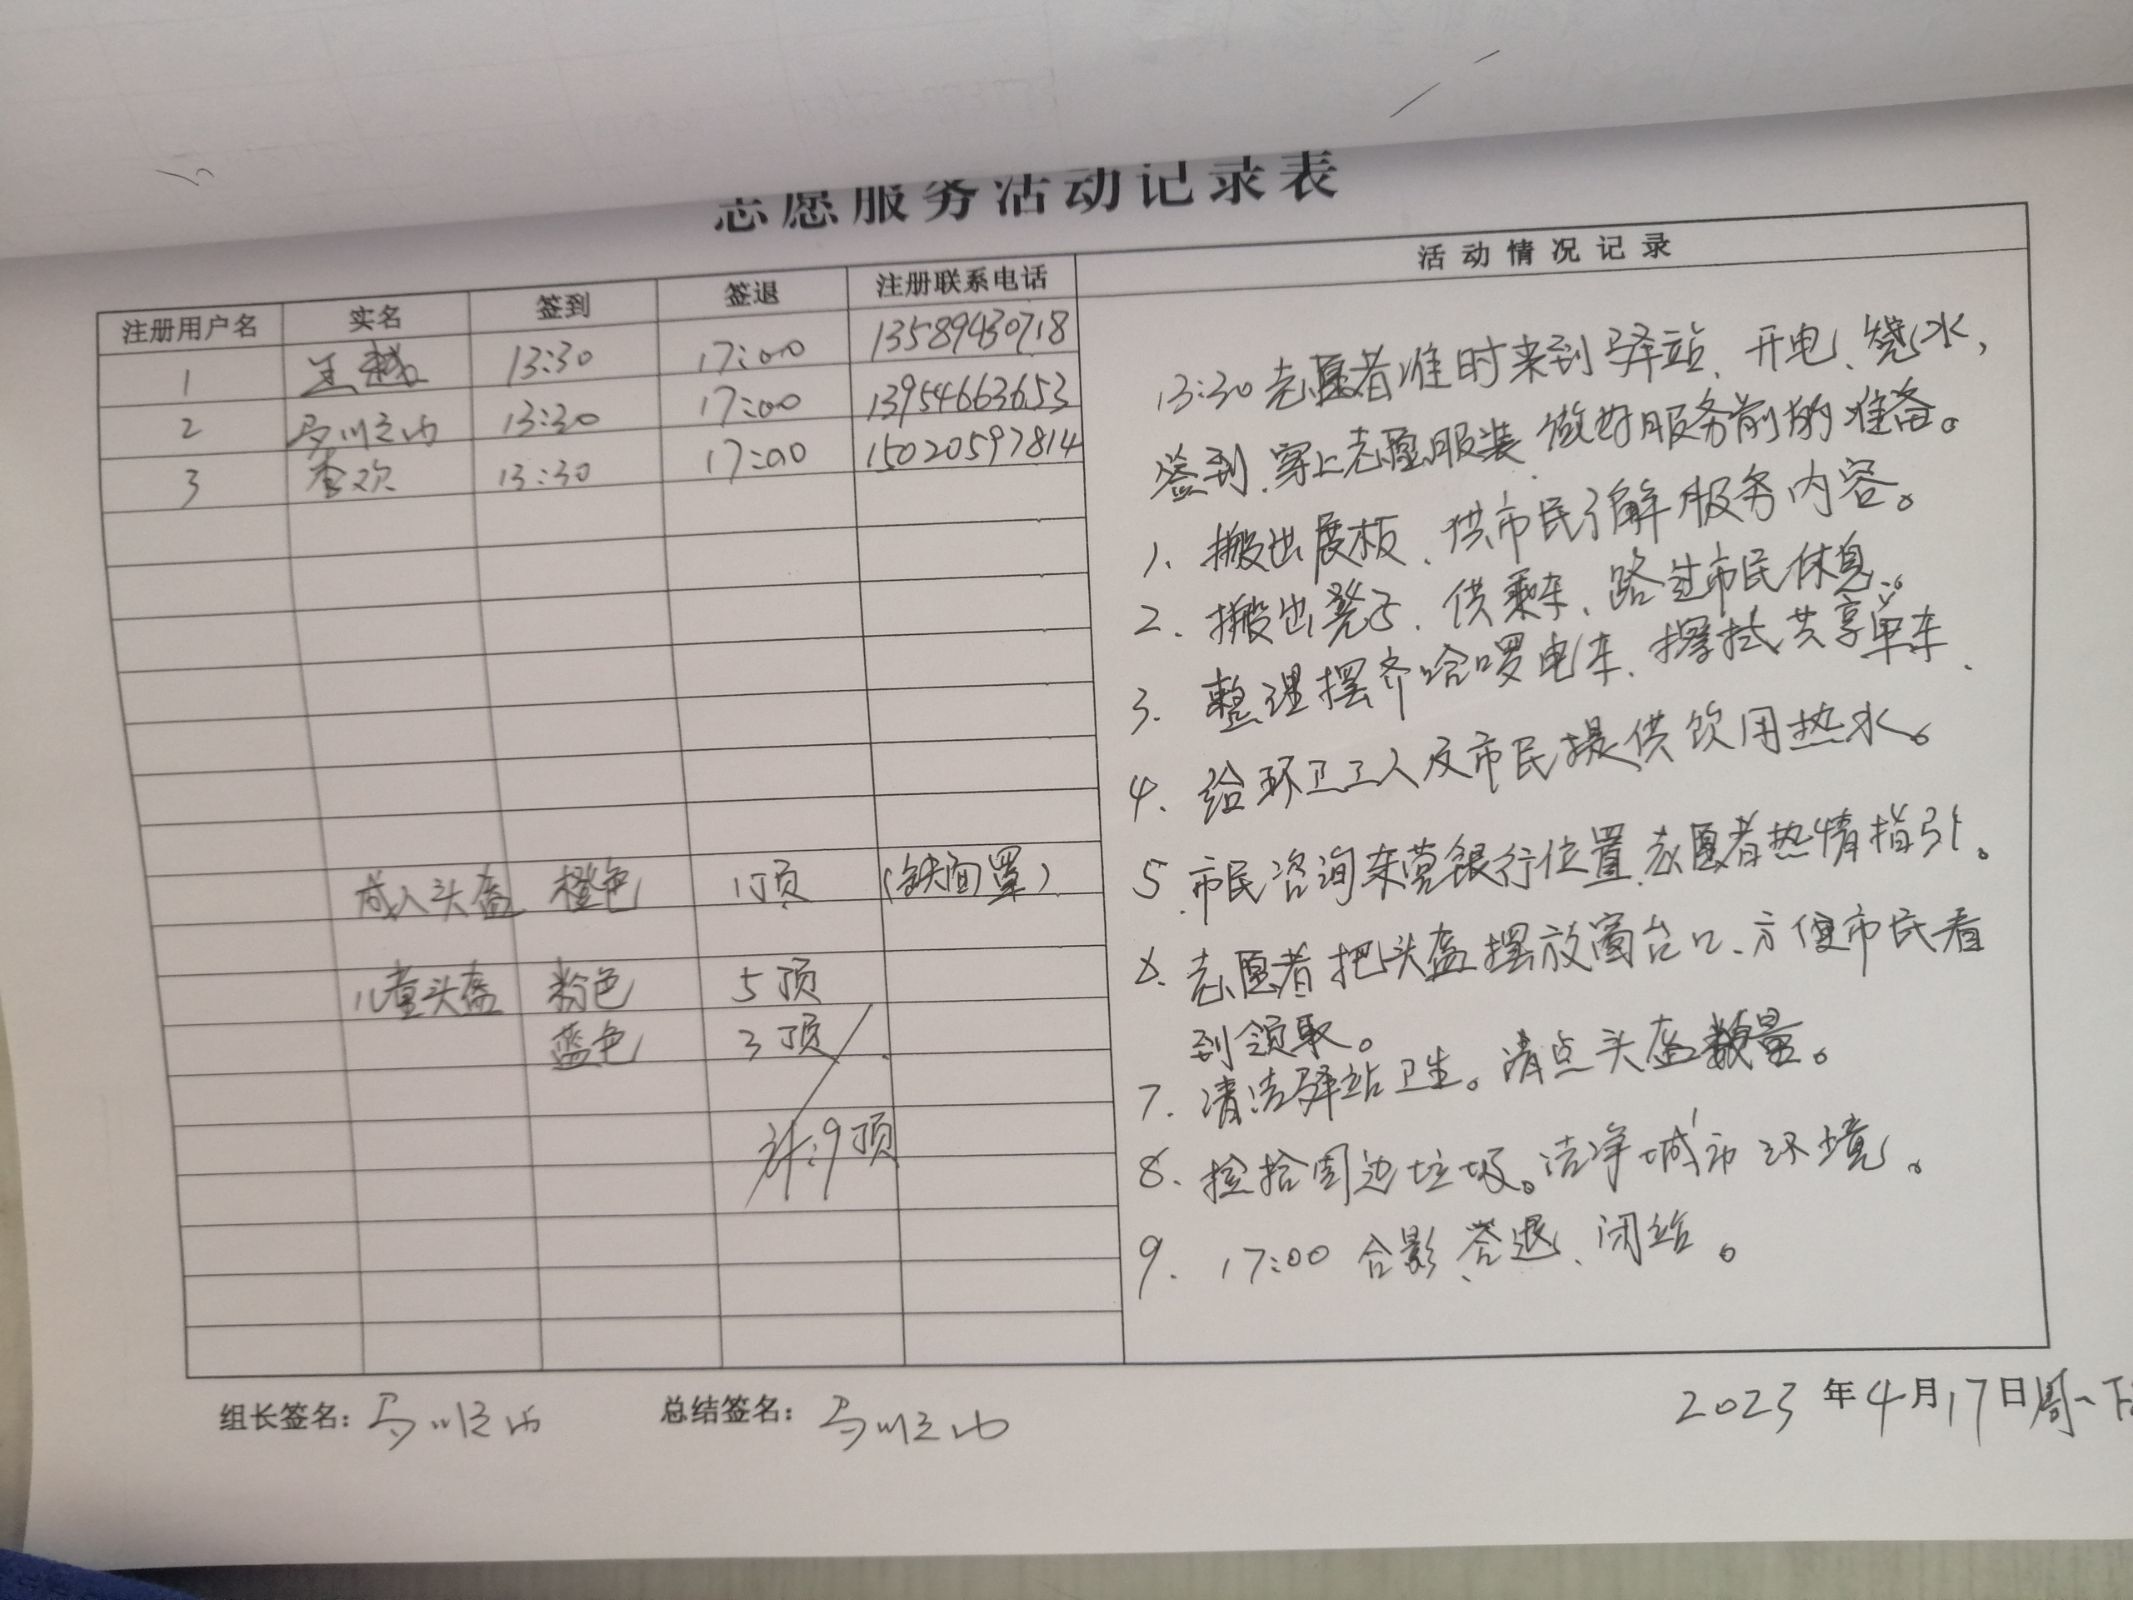 志愿服务活动记录表
注册用户名 实名 签到 签退 注册联系电话 活动情况记录
1 13:30 17:00 13589430718
2 13:30 17:00 13954663653
3 李欢 13:30 17:00 15020597814
成人头盔 橙色 1顶 (铁面罩)
儿童头盔 粉色 5顶
蓝色 3顶
计:9顶
13:30志愿者准时来到驿站、开电、烧水,
签到、穿上志愿服装、做好服务前的准备。
1、搬出展板、供市民了解服务内容。
2、搬出凳子、供乘车、路过市民休息。
3、整理摆齐哈啰电车、擦拭共享单车、
4、给环卫工人及市民提供饮用热水。
5、市民咨询东营银行位置、志愿者热情指引。
6、志愿者把头盔摆放窗台口、方便市民看
到领取。
7、清洁驿站卫生。清点头盔数量。
8、捡拾周边垃圾。洁净城市环境。
9、17:00 合影、签退、闭站。
组长签名: 总结签名: 2023年4月17日周一下